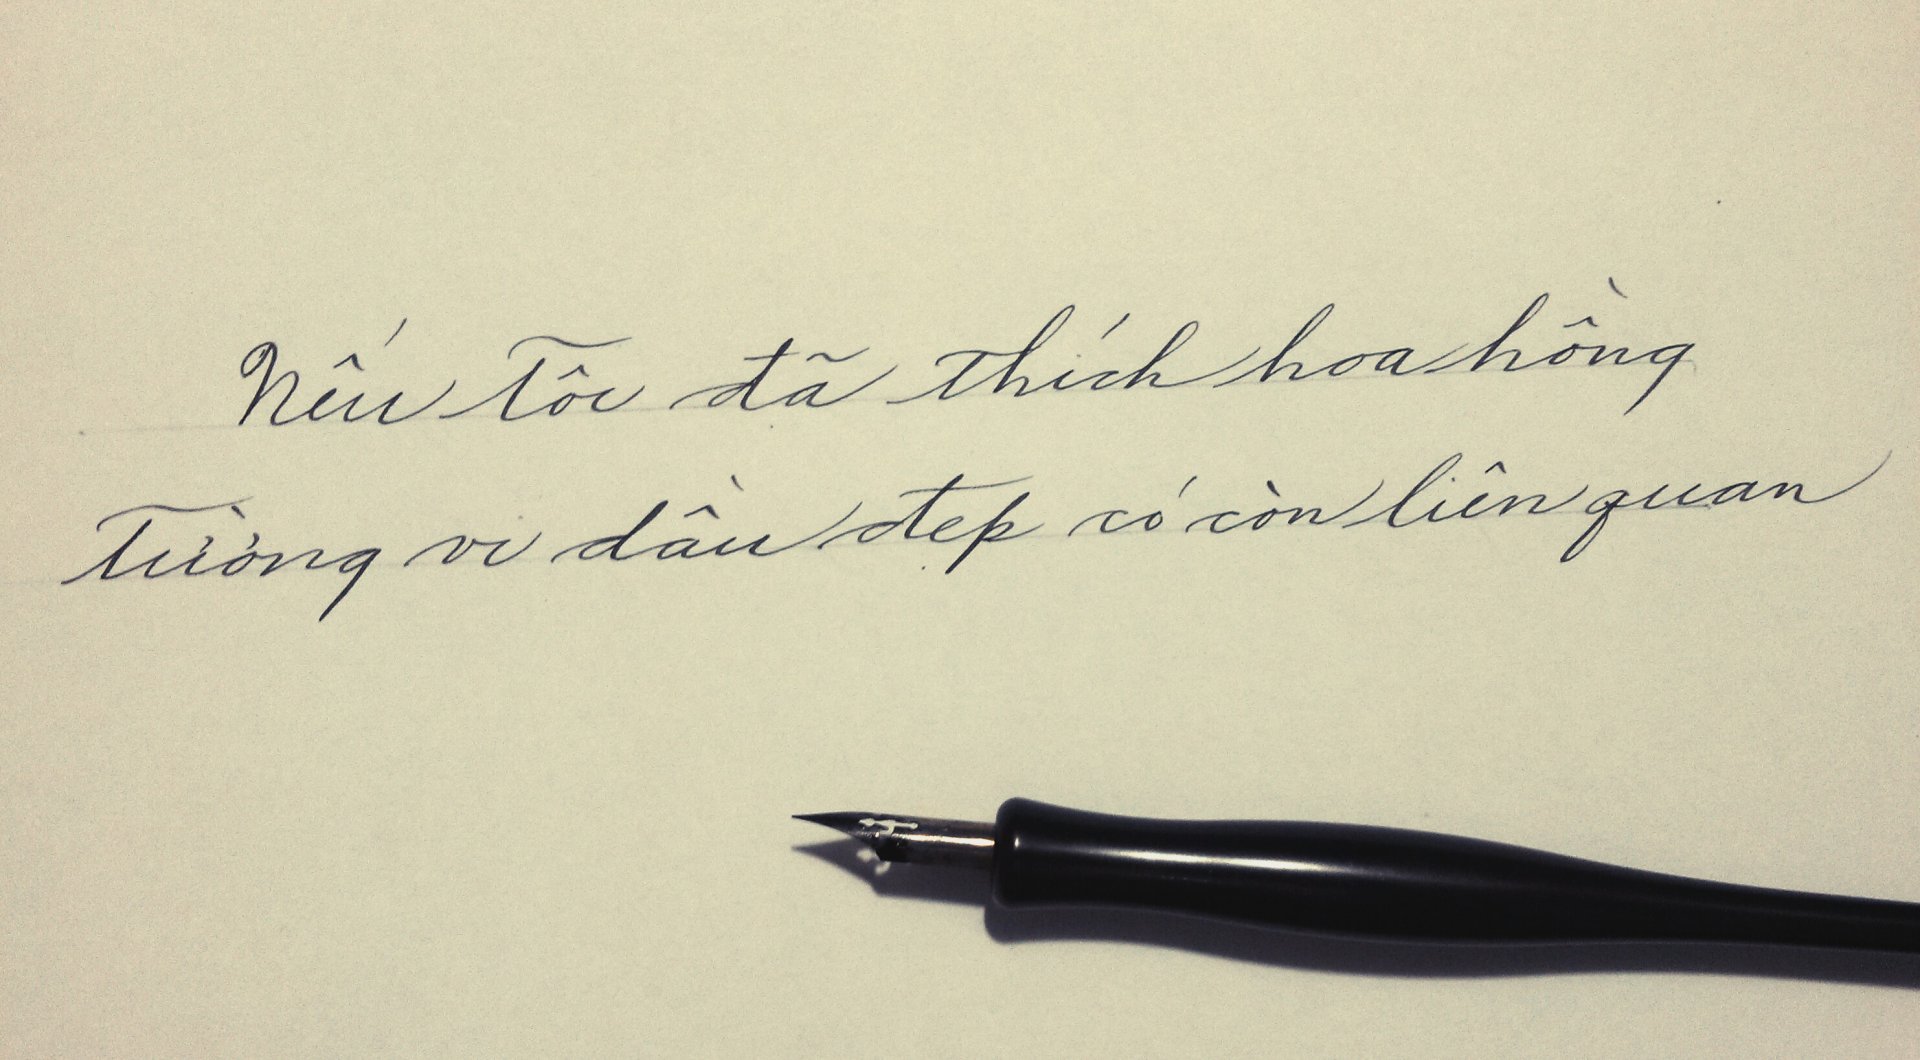 Nếu tôi đã thích hoa hồng
Tường vi dầu đẹp có còn liên quan